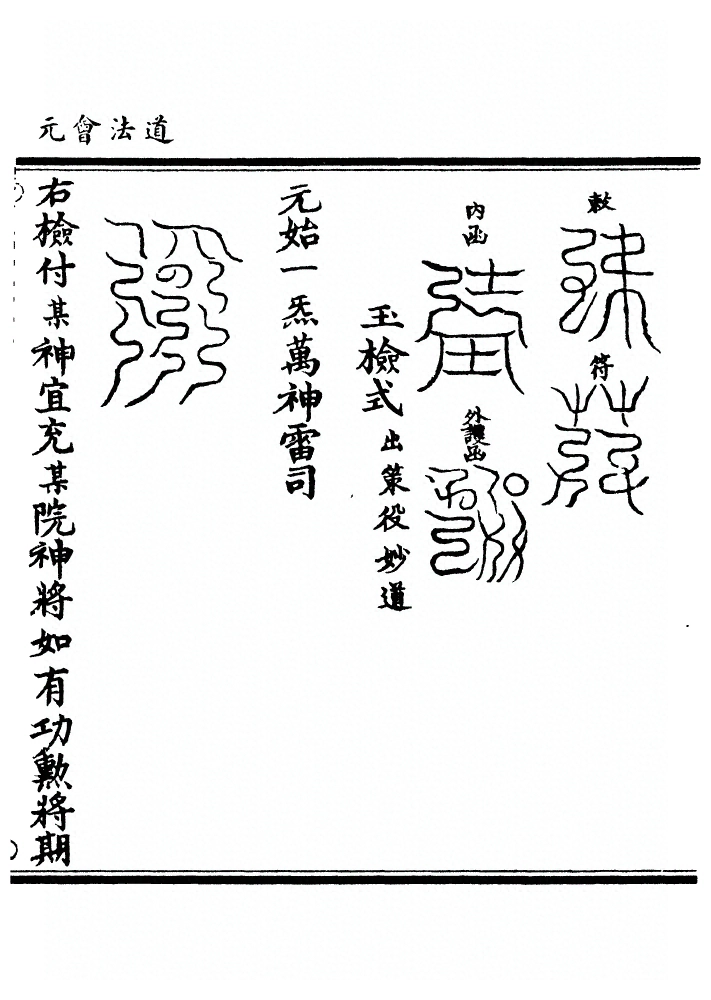 道法會元
敕
符
内函
外護函
玉檢式 出策役妙道
元始一炁萬神雷司
右檢付某神宜充某院神將如有功勳將期